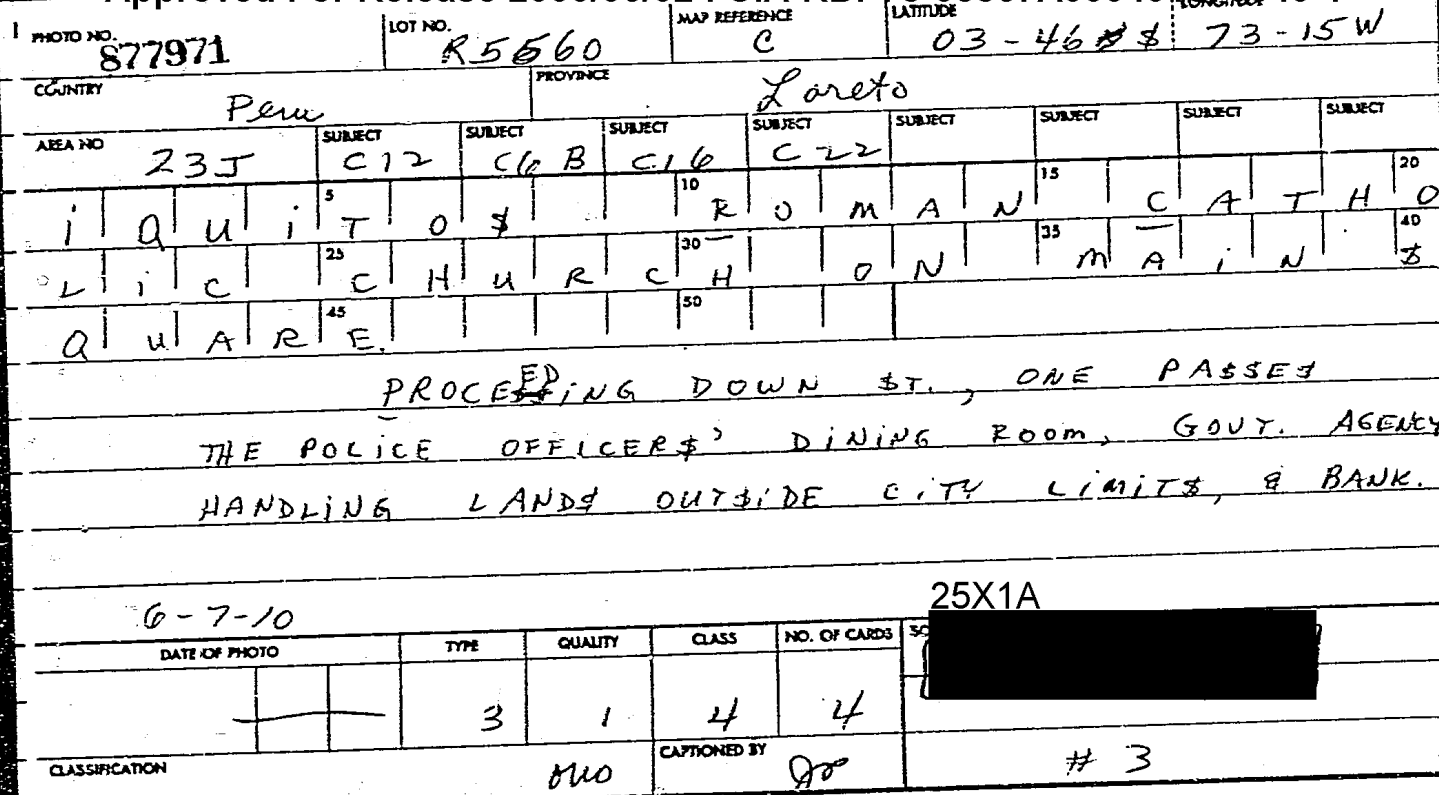 Approved For Release
PHOTO NO. 877971 LOT NO. R5560 MAP REFERENCE C LATITUDE 03-46 S LONGITUDE 73-15 W
COUNTRY Peru PROVINCE Loreto
AREA NO 23J SUBJECT C12 SUBJECT C6B SUBJECT C16 SUBJECT C22 SUBJECT SUBJECT SUBJECT SUBJECT
5 10 15 20
iQUiTO$ ROMAN CATHO
25 30 35 40
LiC CHURCH ON MAiN $
45 50
QUARE.
PROCEEDiNG DOWN $T., ONE PA$$E$
THE POLiCE OFFiCER$' DiNiNG ROOM, GOVT. AGENCY
HANDLiNG LAND$ OUT$iDE CiTY LiMiT$, & BANK.
6-7-10
25X1A
DATE OF PHOTO TYPE QUALITY CLASS NO. OF CARDS
3 1 4 4
CLASSIFICATION CAPTIONED BY # 3